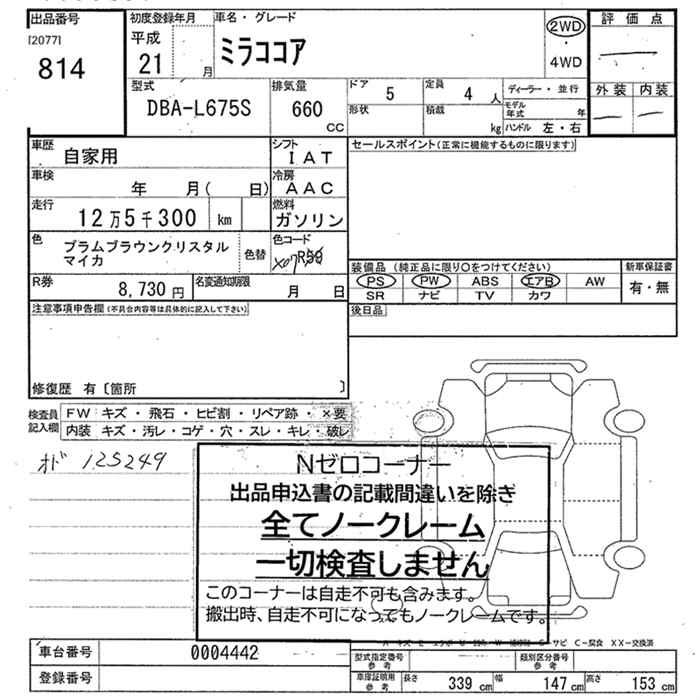 出品番号
[2077]
814
初度登録年月
平成
21 月
車名・グレード
ミラココア
2WD
・
4WD
評価点
外装 内装
型式
DBA-L675S
排気量
660
CC
ドア 5
定員 4 人
形状
積載 kg
ディーラー・並行
モデル年式 年
ハンドル 左・右
車歴 自家用
シフト IAT
車検 年 月( 日)
冷房 AAC
走行 12万5千300 km
燃料 ガソリン
色 プラムブラウンクリスタル
マイカ
色替
色コード
X07 R59
R券 8,730 円
名変通知期限 月 日
セールスポイント(正常に機能するものに限ります)
装備品 (純正品に限り○をつけてください)
新車保証書
PS PW ABS エアB AW
SR ナビ TV カワ
有・無
後日品
注意事項申告欄(不具合内容等は具体的に記入して下さい)
修復歴 有〔箇所 〕
検査員
記入欄
FW キズ・飛石・ヒビ割・リペア跡・×要
内装 キズ・汚レ・コゲ・穴・スレ・キレ 破レ
オド 125249
Nゼロコーナー
出品申込書の記載間違いを除き
全てノークレーム
一切検査しません
このコーナーは自走不可も含みます。
搬出時、自走不可になってもノークレームです。
サビ C-腐食 XX-交換済
車台番号 0004442
登録番号
型式指定番号
参考
類別区分番号
参考
車庫証明用
参考
長さ 339 cm 幅 147 cm 高さ 153 cm